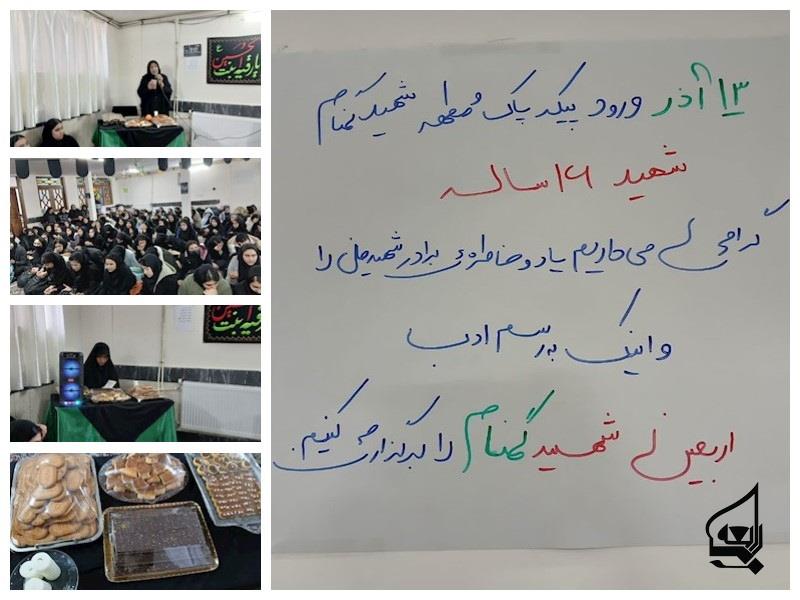 ۱۳ آذر ورود پیکر پاک و مطهر شهید گمنام
شهید ۱۶ ساله
گرامی می‌داریم یاد و خاطره‌ی برادر شهیدمان را
و اینک به رسم ادب
اربعین شهید گمنام را برگزار می‌کنیم.
یا رقیه بنت الحسین